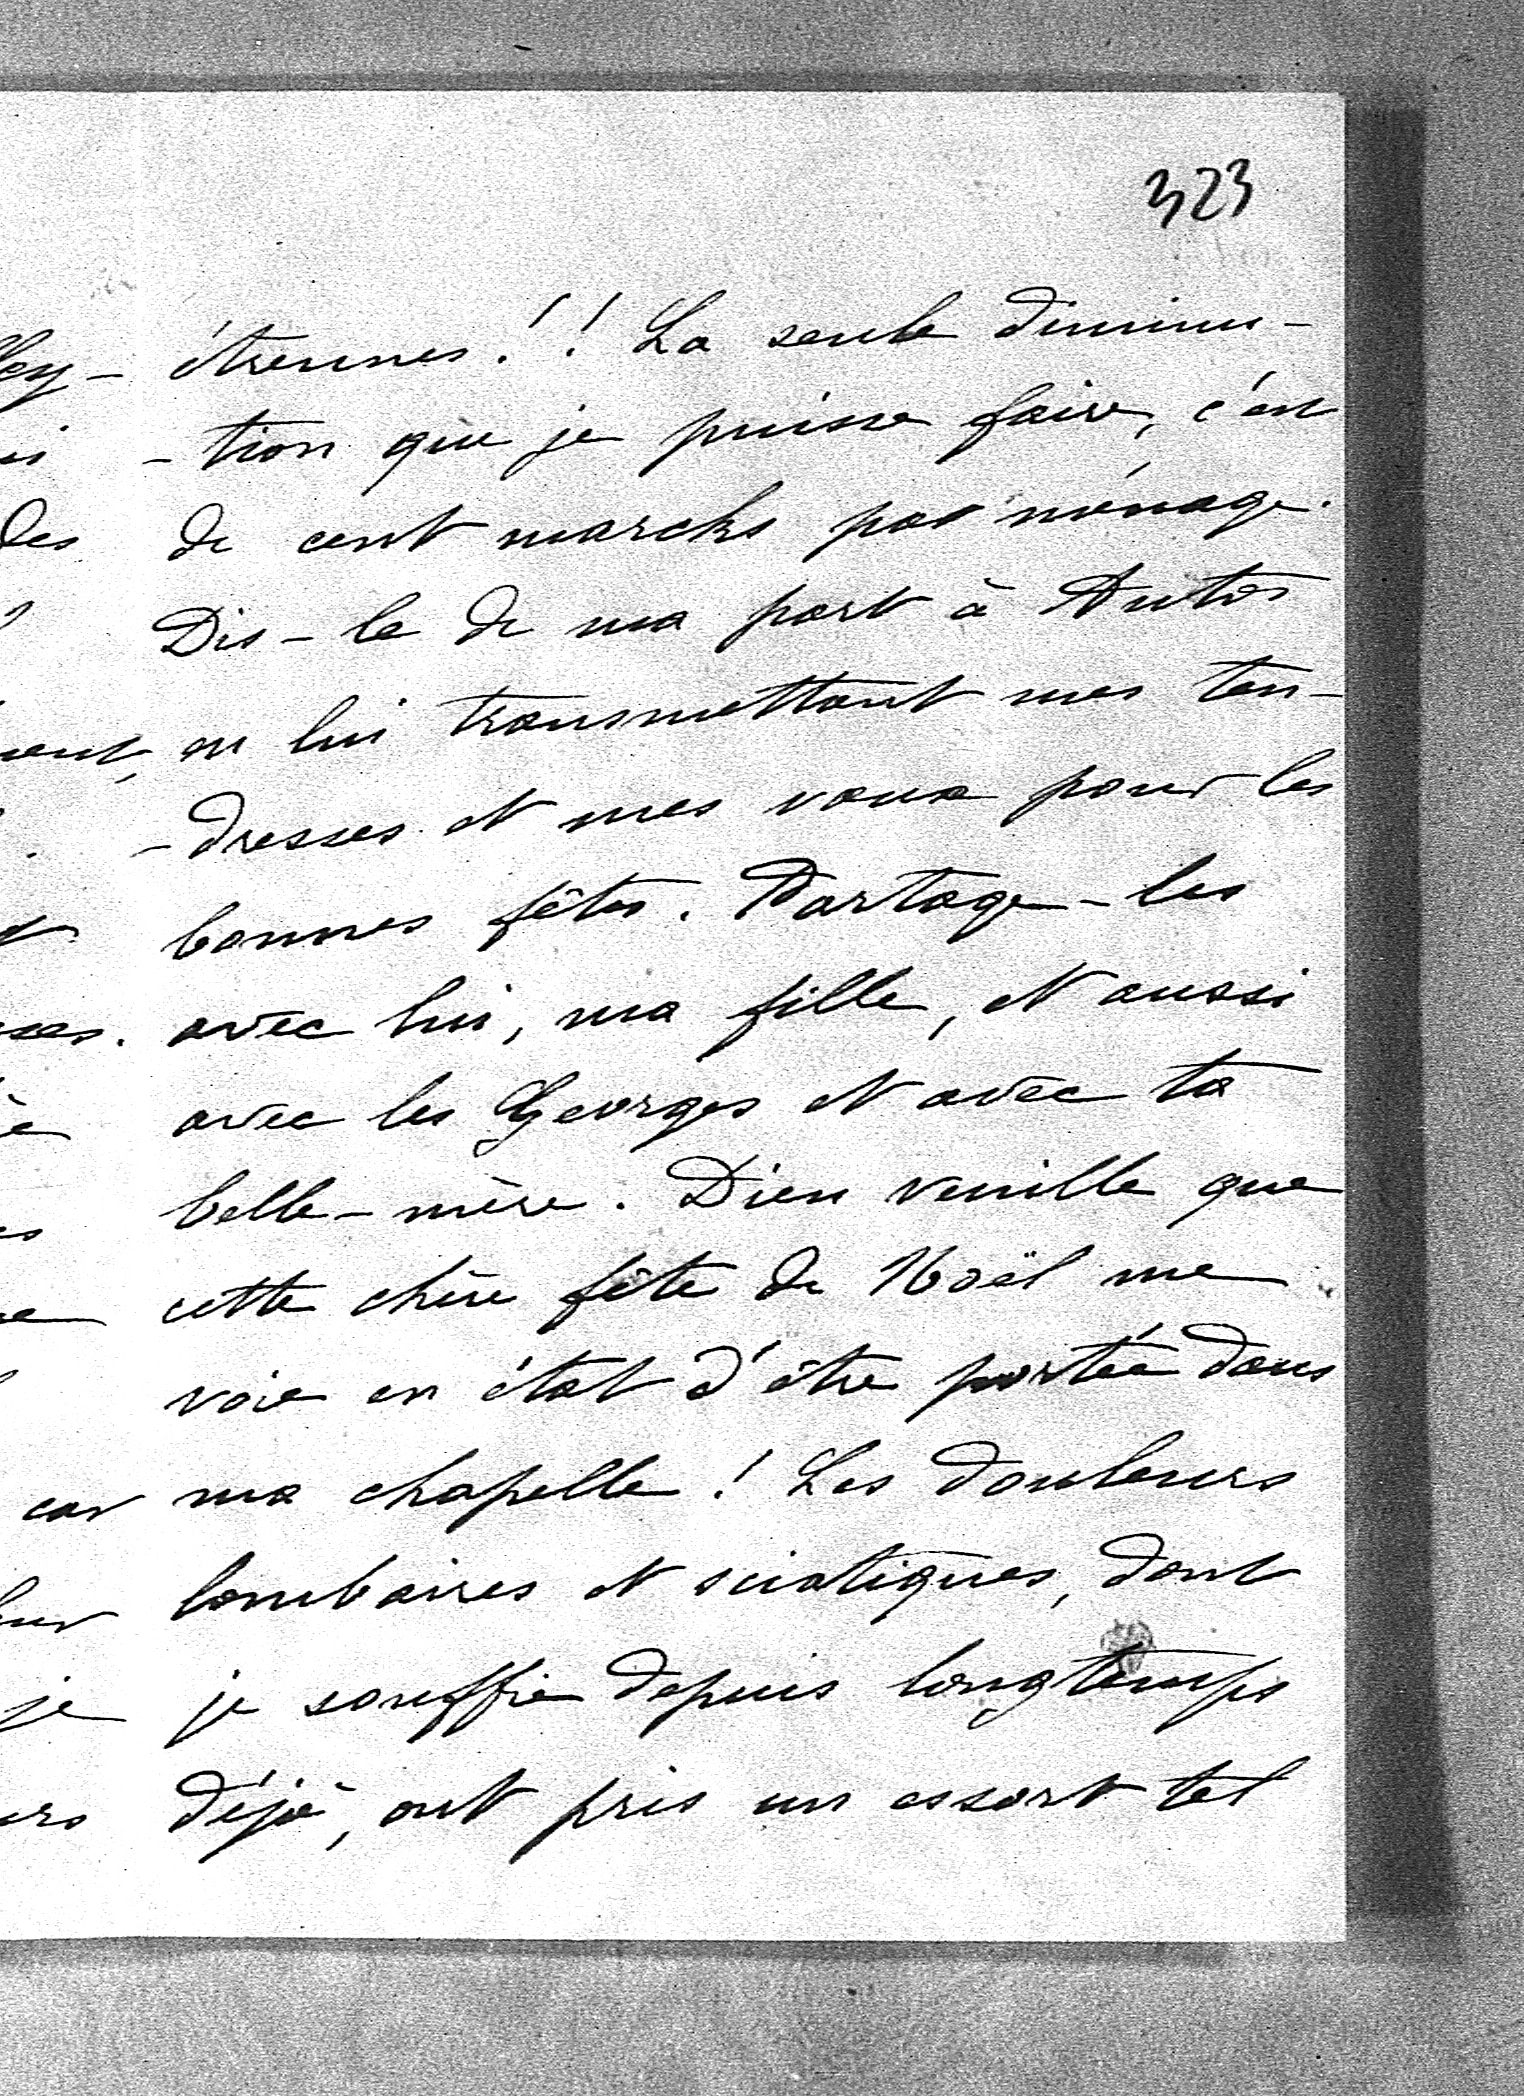 323
étrennes!! La seule diminu-
-tion que je puisse faire, c'est
de cent marcks par ménage.
Dis-le de ma part à Antos
en lui transmettant mes ten-
-dresses et mes vœux pour les
bonnes fêtes. Partage-les
avec lui, ma fille, et aussi
avec les Georges et avec ta
belle-mère. Dieu veuille que
cette chère fête de Noël me
voie en état d'être portée dans
ma chapelle! Les douleurs
lombaires et sciatiques, dont
je souffre depuis longtemps
déjà, ont pris un essort tel
des
car
je